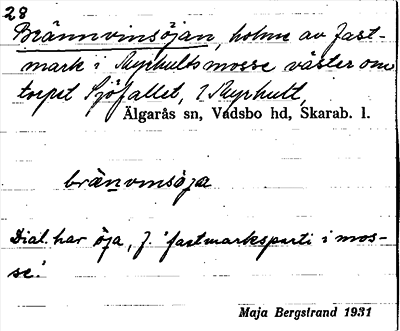 28
Brännvinsöjan, holme av fast-
mark i Myrhults mosse väster om
torpet Sjöfallet, 2 Myrhult,
Älgarås sn, Vadsbo hd, Skarab. l.
bränvinsöja
Dial. har öja, f. 'fastmarksparti i mos-
se'.
Maja Bergstrand 1931